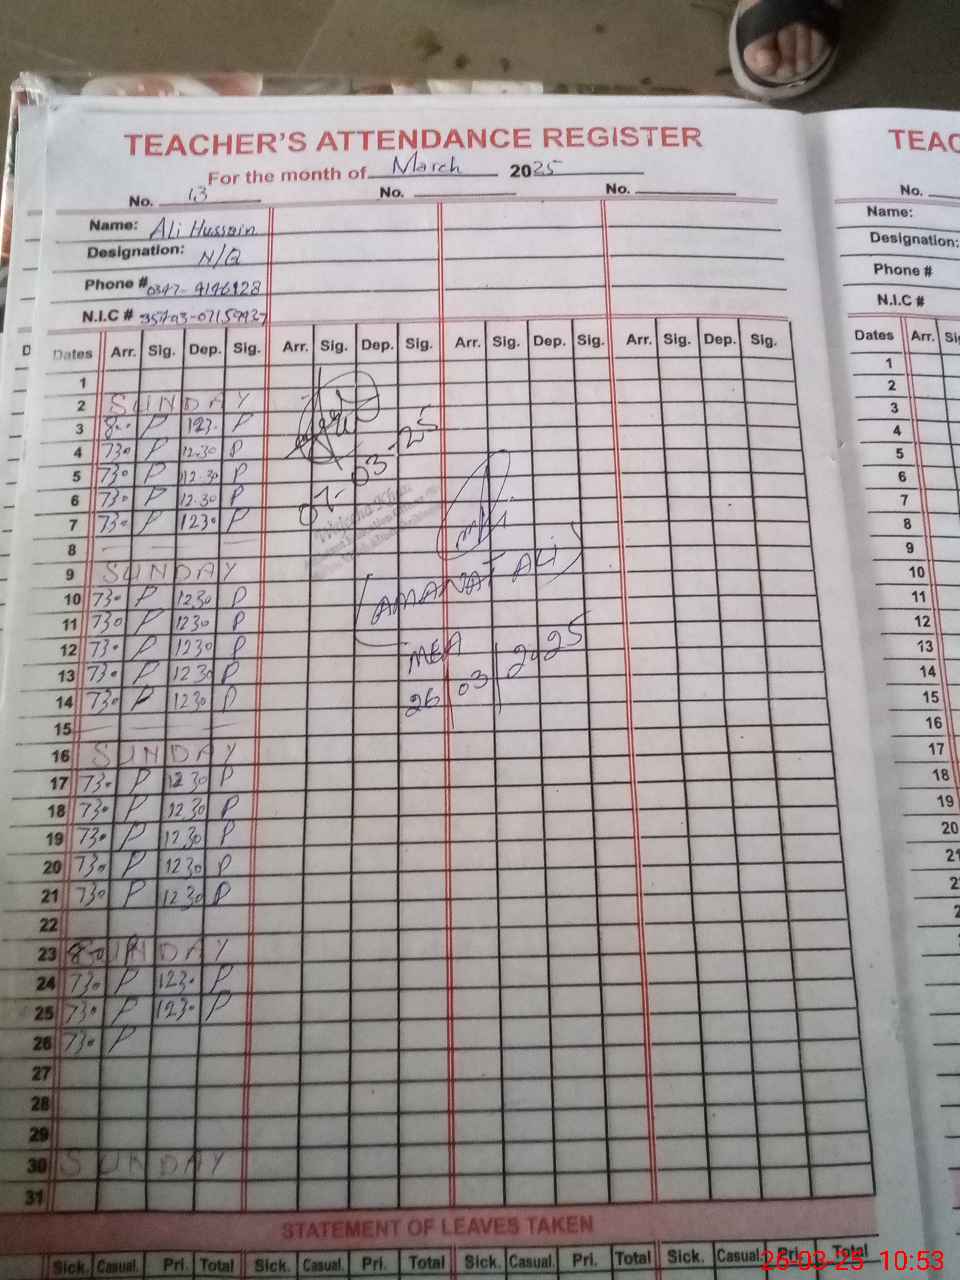 TEACHER'S ATTENDANCE REGISTER
For the month of March 2025
No. 13 No. No.
Name: Ali Hussain
Designation: N/Q
Phone #
N.I.C #
Dates Arr. Sig. Dep. Sig. Arr. Sig. Dep. Sig. Arr. Sig. Dep. Sig. Arr. Sig. Dep. Sig.
1
2 SUNDAY
3 8-0 P 123. P
4 730 P 12.30 P
5 730 P 12.30 P
6 730 P 12.30 P
7 730 P 1230 P
07-03-25
8
9 SUNDAY
10 730 P 1230 P
11 730 P 1230 P
(AMANAT ALI)
12 730 P 1230 P
MEA
13 730 P 1230 P
26/03/2025
14 730 P 1230 P
15
16 SUNDAY
17 730 P 1230 P
18 730 P 1230 P
19 730 P 1230 P
20 730 P 1230 P
21 730 P 1230 P
22
23 SUNDAY
24 730 P 1230 P
25 730 P 1230 P
26 730 P
27
28
29
30 SUNDAY
31
STATEMENT OF LEAVES TAKEN
Sick. Casual. Pri. Total Sick. Casual. Pri. Total Sick. Casual. Pri. Total Sick. Casual. Pri. Total
TEAC
No.
Name:
Designation:
Phone #
N.I.C #
Dates Arr. Si
1
2
3
4
5
6
7
8
9
10
11
12
13
14
15
16
17
18
19
20
21
26-03-25 10:53